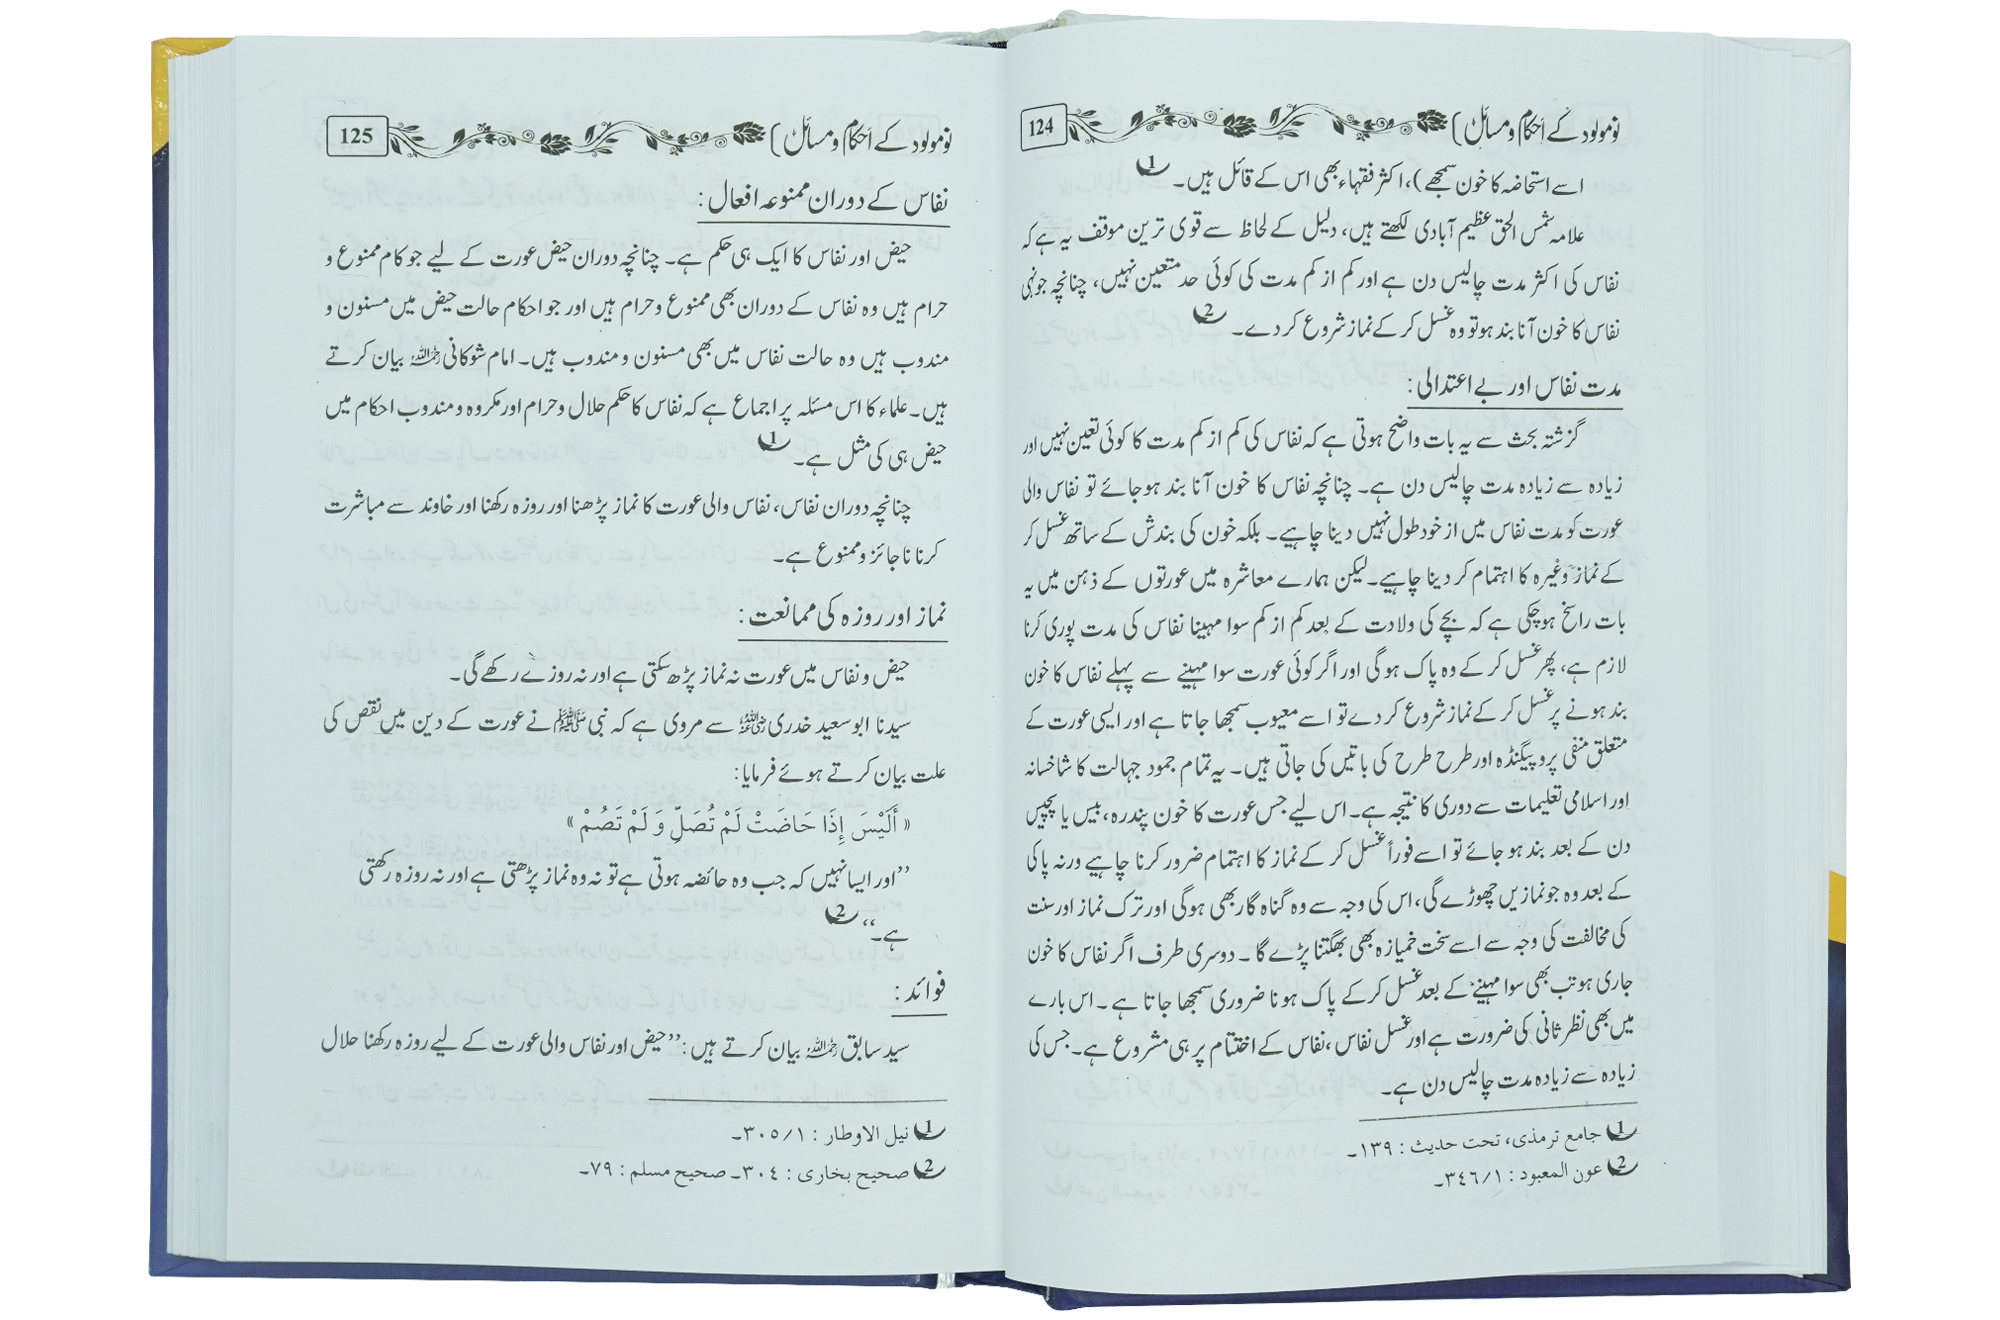 نومولود کے احکام و مسائل) 124
اسے استحاضہ کا خون سمجھے)، اکثر فقہاء بھی اس کے قائل ہیں۔ 1
علامہ شمس الحق عظیم آبادی لکھتے ہیں، دلیل کے لحاظ سے قوی ترین موقف یہ ہے کہ
نفاس کی اکثر مدت چالیس دن ہے اور کم از کم مدت کی کوئی حد متعین نہیں، چنانچہ جونہی
نفاس کا خون آنا بند ہو تو وہ غسل کر کے نماز شروع کر دے۔ 2
مدت نفاس اور بے اعتدالی:
گزشتہ بحث سے یہ بات واضح ہوتی ہے کہ نفاس کی کم از کم مدت کا کوئی تعین نہیں اور
زیادہ سے زیادہ مدت چالیس دن ہے۔ چنانچہ نفاس کا خون آنا بند ہو جائے تو نفاس والی
عورت کو مدت نفاس میں از خود طول نہیں دینا چاہیے۔ بلکہ خون کی بندش کے ساتھ غسل کر
کے نماز وغیرہ کا اہتمام کر دینا چاہیے۔ لیکن ہمارے معاشرہ میں عورتوں کے ذہن میں یہ
بات راسخ ہو چکی ہے کہ بچے کی ولادت کے بعد کم از کم سوا مہینا نفاس کی مدت پوری کرنا
لازم ہے، پھر غسل کر کے وہ پاک ہو گی اور اگر کوئی عورت سوا مہینے سے پہلے نفاس کا خون
بند ہونے پر غسل کر کے نماز شروع کر دے تو اسے معیوب سمجھا جاتا ہے اور ایسی عورت کے
متعلق منفی پروپیگنڈہ اور طرح طرح کی باتیں کی جاتی ہیں۔ یہ تمام جمود جہالت کا شاخسانہ
اور اسلامی تعلیمات سے دوری کا نتیجہ ہے۔ اس لیے جس عورت کا خون پندرہ، بیس یا پچیس
دن کے بعد بند ہو جائے تو اسے فوراً غسل کر کے نماز کا اہتمام ضرور کرنا چاہیے ورنہ پاکی
کے بعد وہ جو نمازیں چھوڑے گی، اس کی وجہ سے وہ گناہ گار بھی ہو گی اور ترک نماز اور سنت
کی مخالفت کی وجہ سے اسے سخت خمیازہ بھی بھگتنا پڑے گا۔ دوسری طرف اگر نفاس کا خون
جاری ہو تب بھی سوا مہینے کے بعد غسل کر کے پاک ہونا ضروری سمجھا جاتا ہے۔ اس بارے
میں بھی نظر ثانی کی ضرورت ہے اور غسل نفاس، نفاس کے اختتام پر ہی مشروع ہے۔ جس کی
زیادہ سے زیادہ مدت چالیس دن ہے۔
1 جامع ترمذی، تحت حدیث : ١٣٩۔
2 عون المعبود : ١/ ٣٤٦۔
نومولود کے احکام و مسائل) 125
نفاس کے دوران ممنوعہ افعال:
حیض اور نفاس کا ایک ہی حکم ہے۔ چنانچہ دوران حیض عورت کے لیے جو کام ممنوع و
حرام ہیں وہ نفاس کے دوران بھی ممنوع و حرام ہیں اور جو احکام حالت حیض میں مسنون و
مندوب ہیں وہ حالت نفاس میں بھی مسنون و مندوب ہیں۔ امام شوکانی رحمہ اللہ بیان کرتے
ہیں۔ علماء کا اس مسئلہ پر اجماع ہے کہ نفاس کا حکم حلال و حرام اور مکروہ و مندوب احکام میں
حیض ہی کی مثل ہے۔ 1
چنانچہ دوران نفاس، نفاس والی عورت کا نماز پڑھنا اور روزہ رکھنا اور خاوند سے مباشرت
کرنا ناجائز و ممنوع ہے۔
نماز اور روزہ کی ممانعت:
حیض و نفاس میں عورت نہ نماز پڑھ سکتی ہے اور نہ روزے رکھے گی۔
سیدنا ابو سعید خدری رضی اللہ عنہ سے مروی ہے کہ نبی ﷺ نے عورت کے دین میں نقص کی
علت بیان کرتے ہوئے فرمایا:
« أَلَيْسَ إِذَا حَاضَتْ لَمْ تُصَلِّ وَ لَمْ تَصُمْ »
’’اور ایسا نہیں کہ جب وہ حائضہ ہوتی ہے تو نہ وہ نماز پڑھتی ہے اور نہ روزہ رکھتی
ہے۔‘‘ 2
فوائد:
سید سابق رحمہ اللہ بیان کرتے ہیں: ’’حیض اور نفاس والی عورت کے لیے روزہ رکھنا حلال
1 نیل الاوطار : ١/ ٣٠٥۔
2 صحیح بخاری : ٣٠٤۔ صحیح مسلم : ٧٩۔